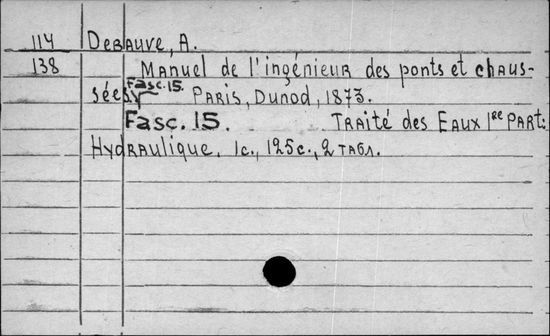 114 Debauve, A.
138 Manuel de l'ingénieur des ponts et chaus-
Fasc. 15.
sées. Paris, Dunod, 1873.
Fasc. 15. Traité des Eaux 1re Part:
Hydraulique. 1c., 125c., 2 табл.